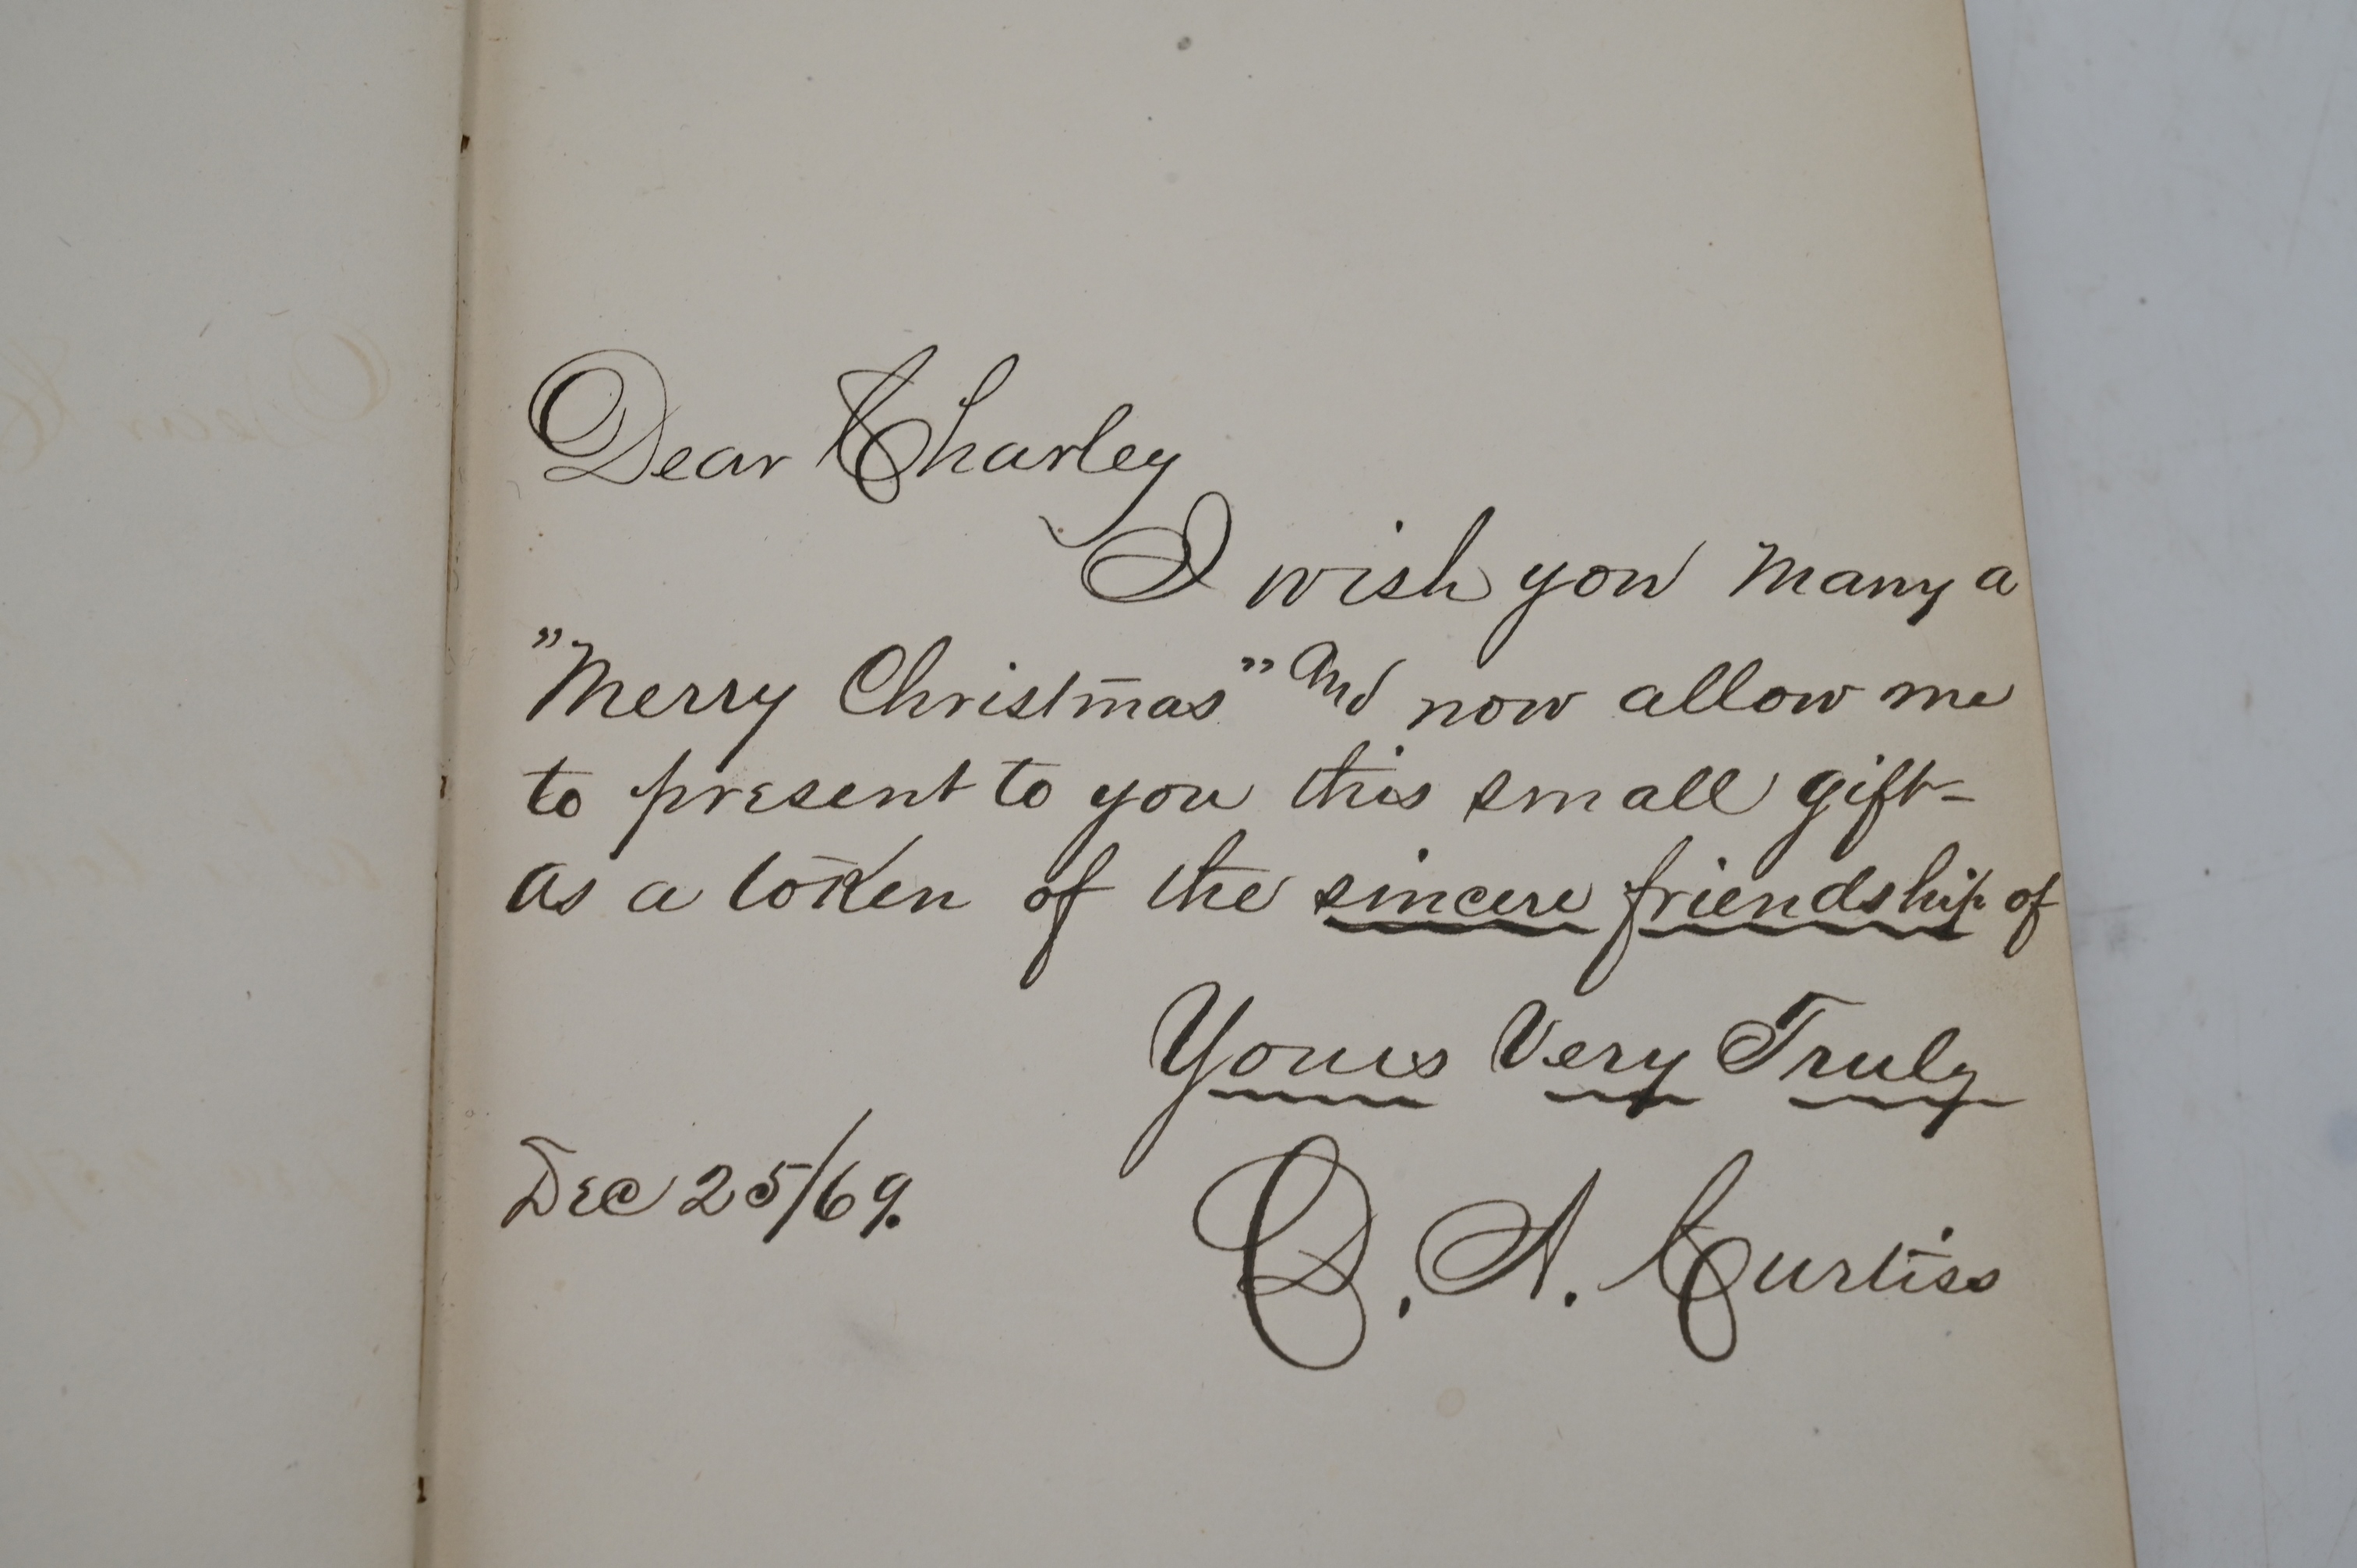 Dear Charley
I wish you many a
"Merry Christmas" And now allow me
to present to you this small gift-
as a token of the sincere friendship of
Yours Very Truly
Dec 25/69.
D. A. Curtiss